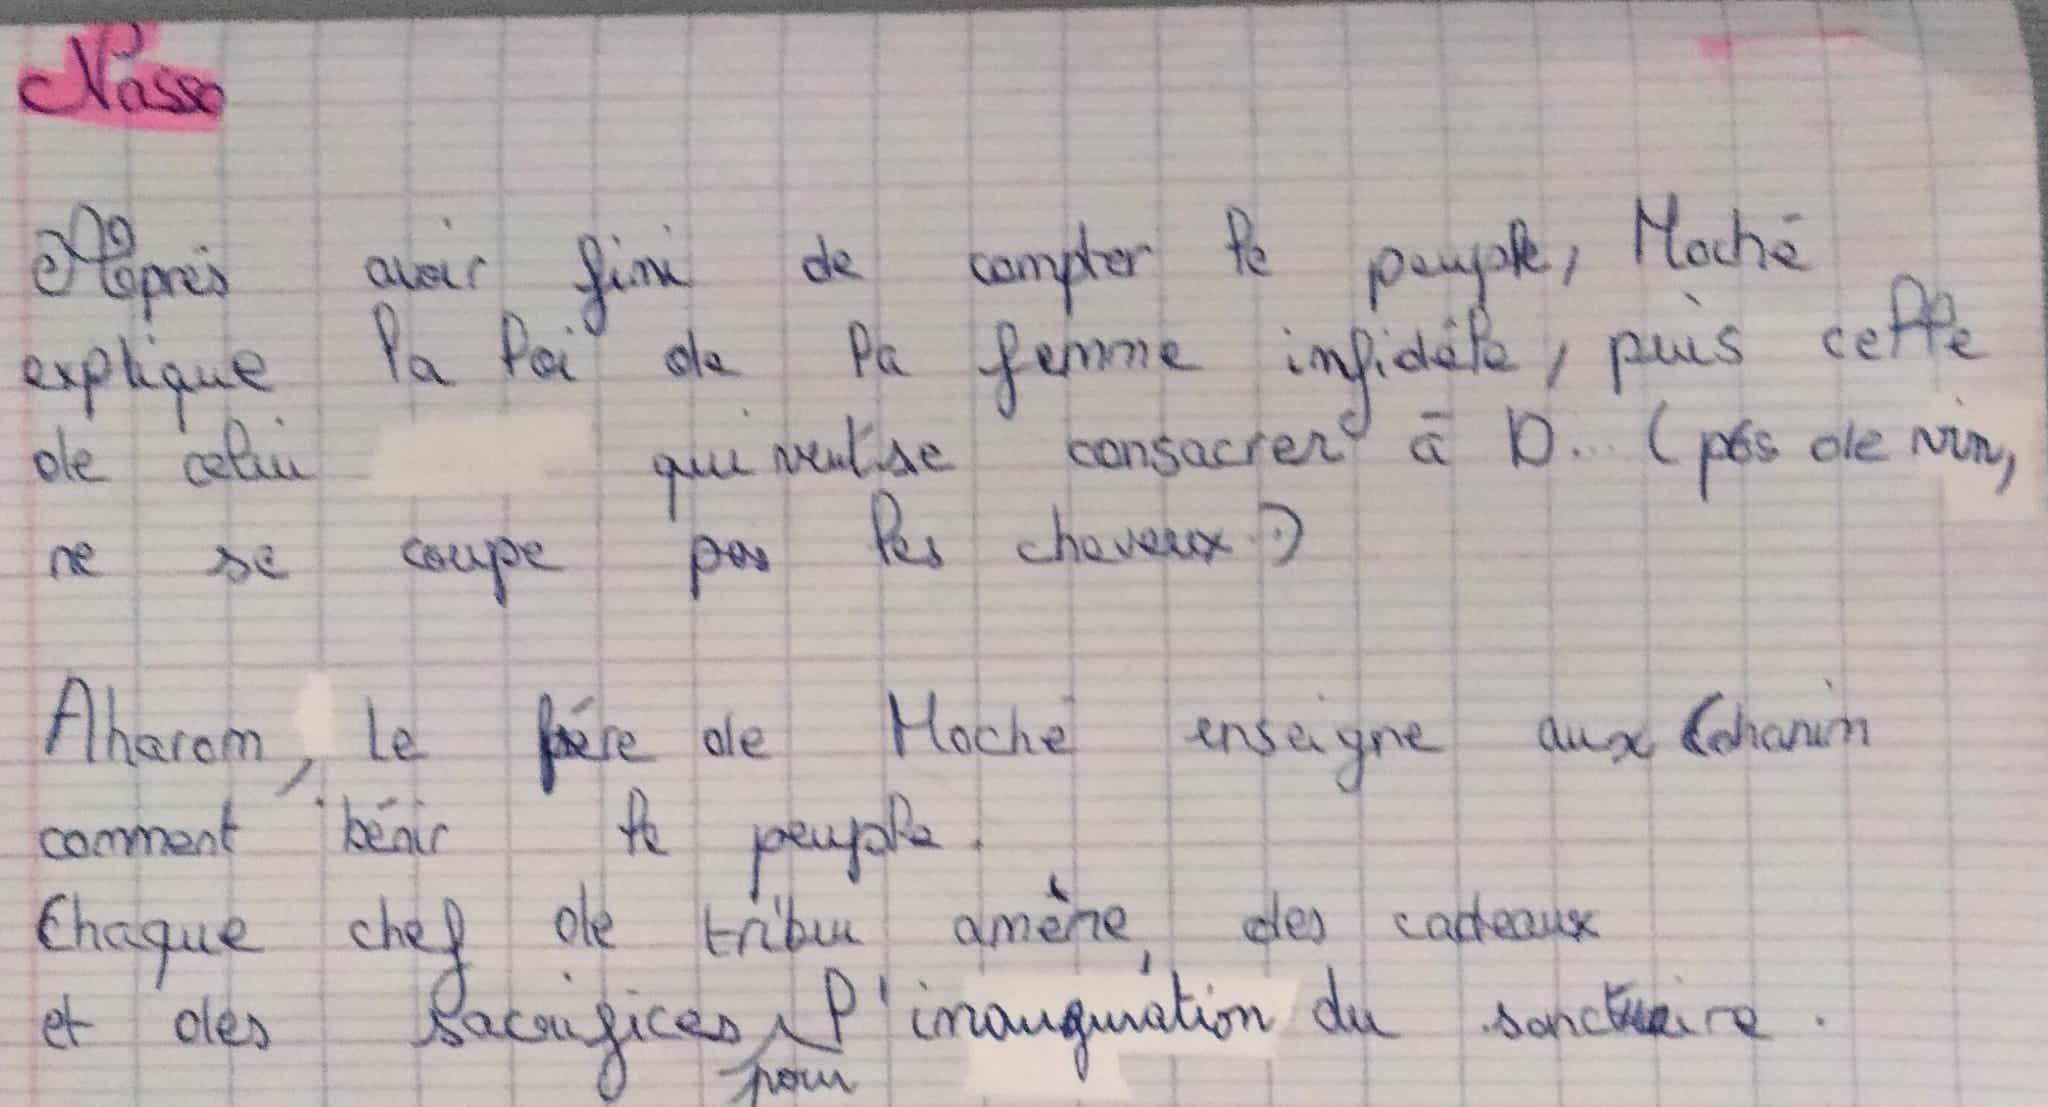 Nasso
Après avoir fini de compter le peuple, Moché
explique la loi de la femme infidèle, puis celle
de celui qui veut se consacrer à D... (pas de vin,
ne se coupe pas les cheveux..)
Aharom, le frère de Moché enseigne aux Cohanim
comment bénir le peuple.
Chaque chef de tribu amène des cadeaux
et des sacrifices pour l'inauguration du sanctuaire.